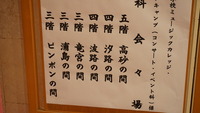 校ミュージックカレッジ
キャンプ（コンサート・イベント科）様
科会々場
五階 高砂の間
四階 汐路の間
四階 波路の間
三階 竜宮の間
三階 浦島の間
三階 ピンポンの間